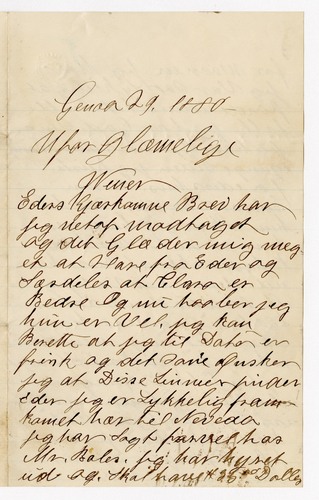 Genoa 29. 1880
Ufor Glæmelige
Wener
Eders Kjærkomne Brev har
jeg netop modtaget
og det Glæder mig meg
et at Høre fra Eder og
Særdeles at Clara er
Bedre og nu haaber jeg
hun er Vel. jeg kan
Berette at jeg til Dato er
frisk og det Same Ønsker
jeg at Disse Linnier finder
Eder jeg er Lykkelig fram
komet her til Nevada
jeg har hos
Mr. Boles. jeg har hyret
ud og. Skal have 25 Doller